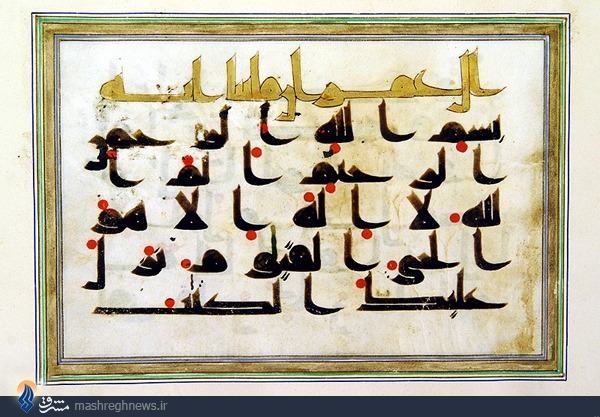 ال عمران مايتا ايه
بسم الله الرحمن
الرحيم الم ا
لله لا اله الا هو
الحي القيوم نزل
عليك الكتب
مشرق mashreghnews.ir